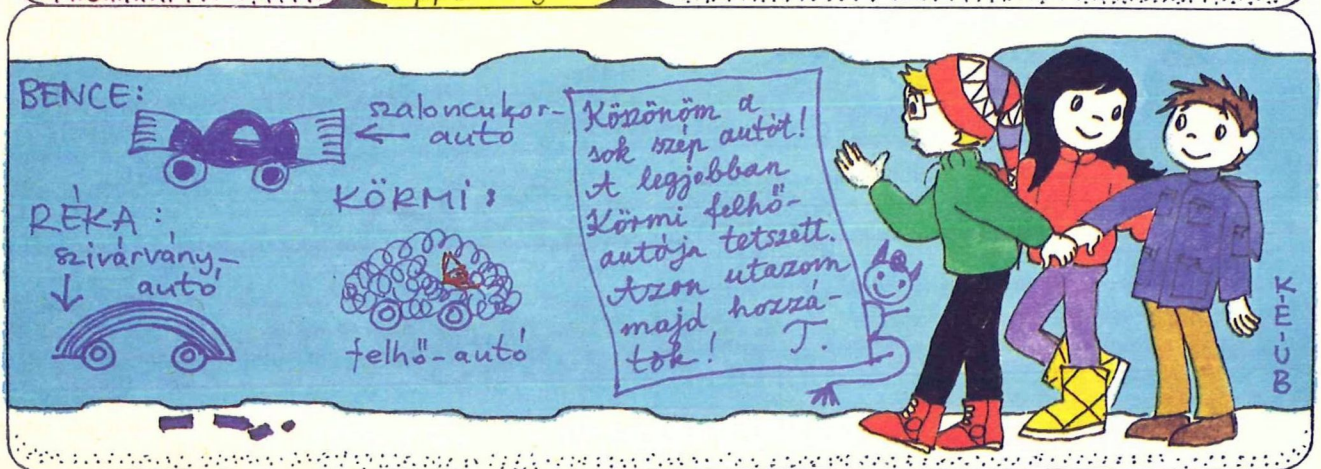 BENCE:
szaloncukor-
autó
RÉKA:
szivárvány-
autó
KÖRMI:
felhő-autó
Köszönöm a
sok szép autót!
A legjobban
Körmi felhő-
autója tetszett.
Azon utazom
majd hozzá-
tok! T.
K-É-U-B